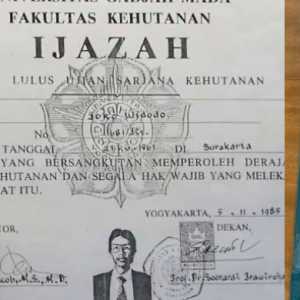 UNIVERSITAS GADJAH MADA
FAKULTAS KEHUTANAN
IJAZAH
LULUS UJIAN SARJANA KEHUTANAN
Joko Widodo
No
TANGGAL 1961 DI Surakarta
YANG BERSANGKUTAN MEMPEROLEH DERAJA
HUTANAN DAN SEGALA HAK WAJIB YANG MELEK
AT ITU.
YOGYAKARTA, 5 - 11 - 1985
OR, DEKAN,
Prof. Dr. Soenardi Prawiroha